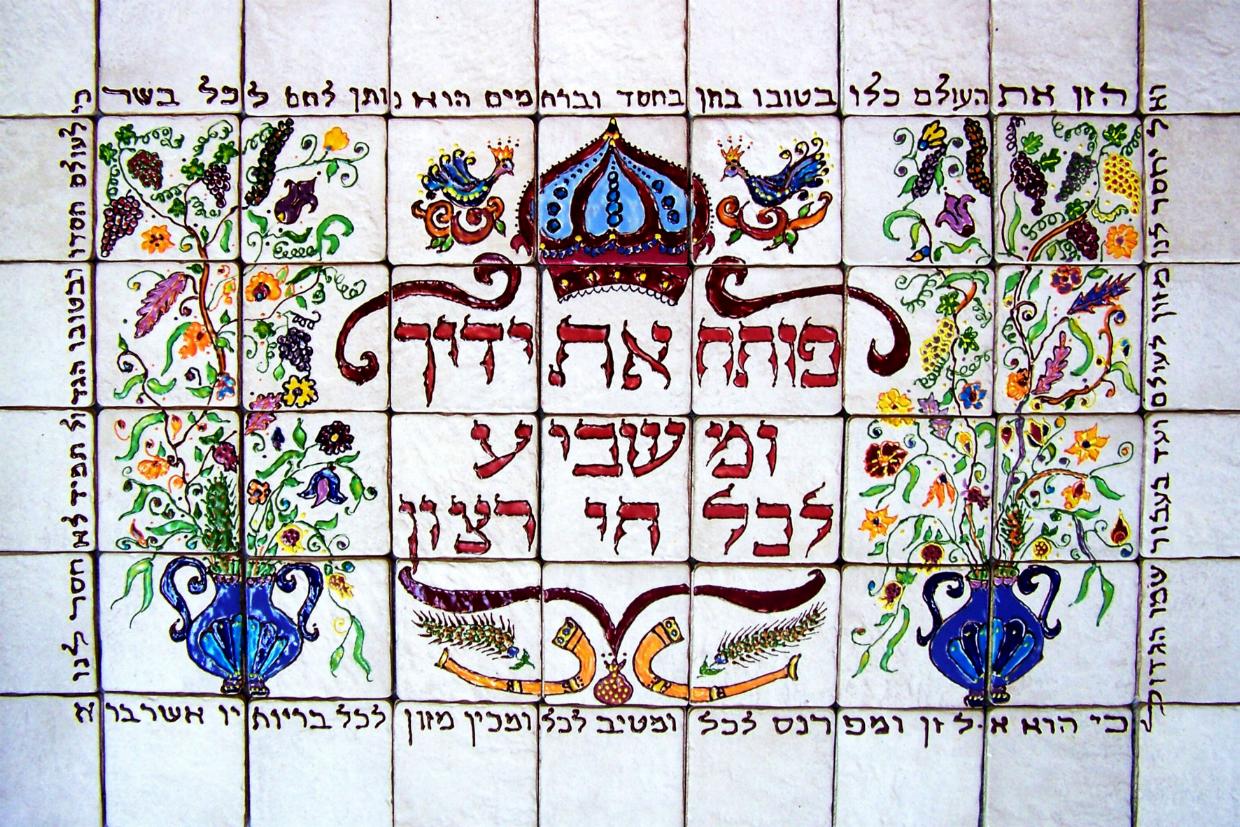 הזן את העולם כלו בטובו בחן בחסד וברחמים הוא נותן לחם לכל בשר
כי לעולם חסדו ובטובו הגדול תמיד לא חסר לנו
ואל יחסר לנו מזון לעולם ועד בעבור שמו הגדול
כי הוא אל זן ומפרנס לכל ומטיב לכל ומכין מזון לכל בריותיו אשר ברא
פותח את ידיך
ומשביע
לכל חי רצון